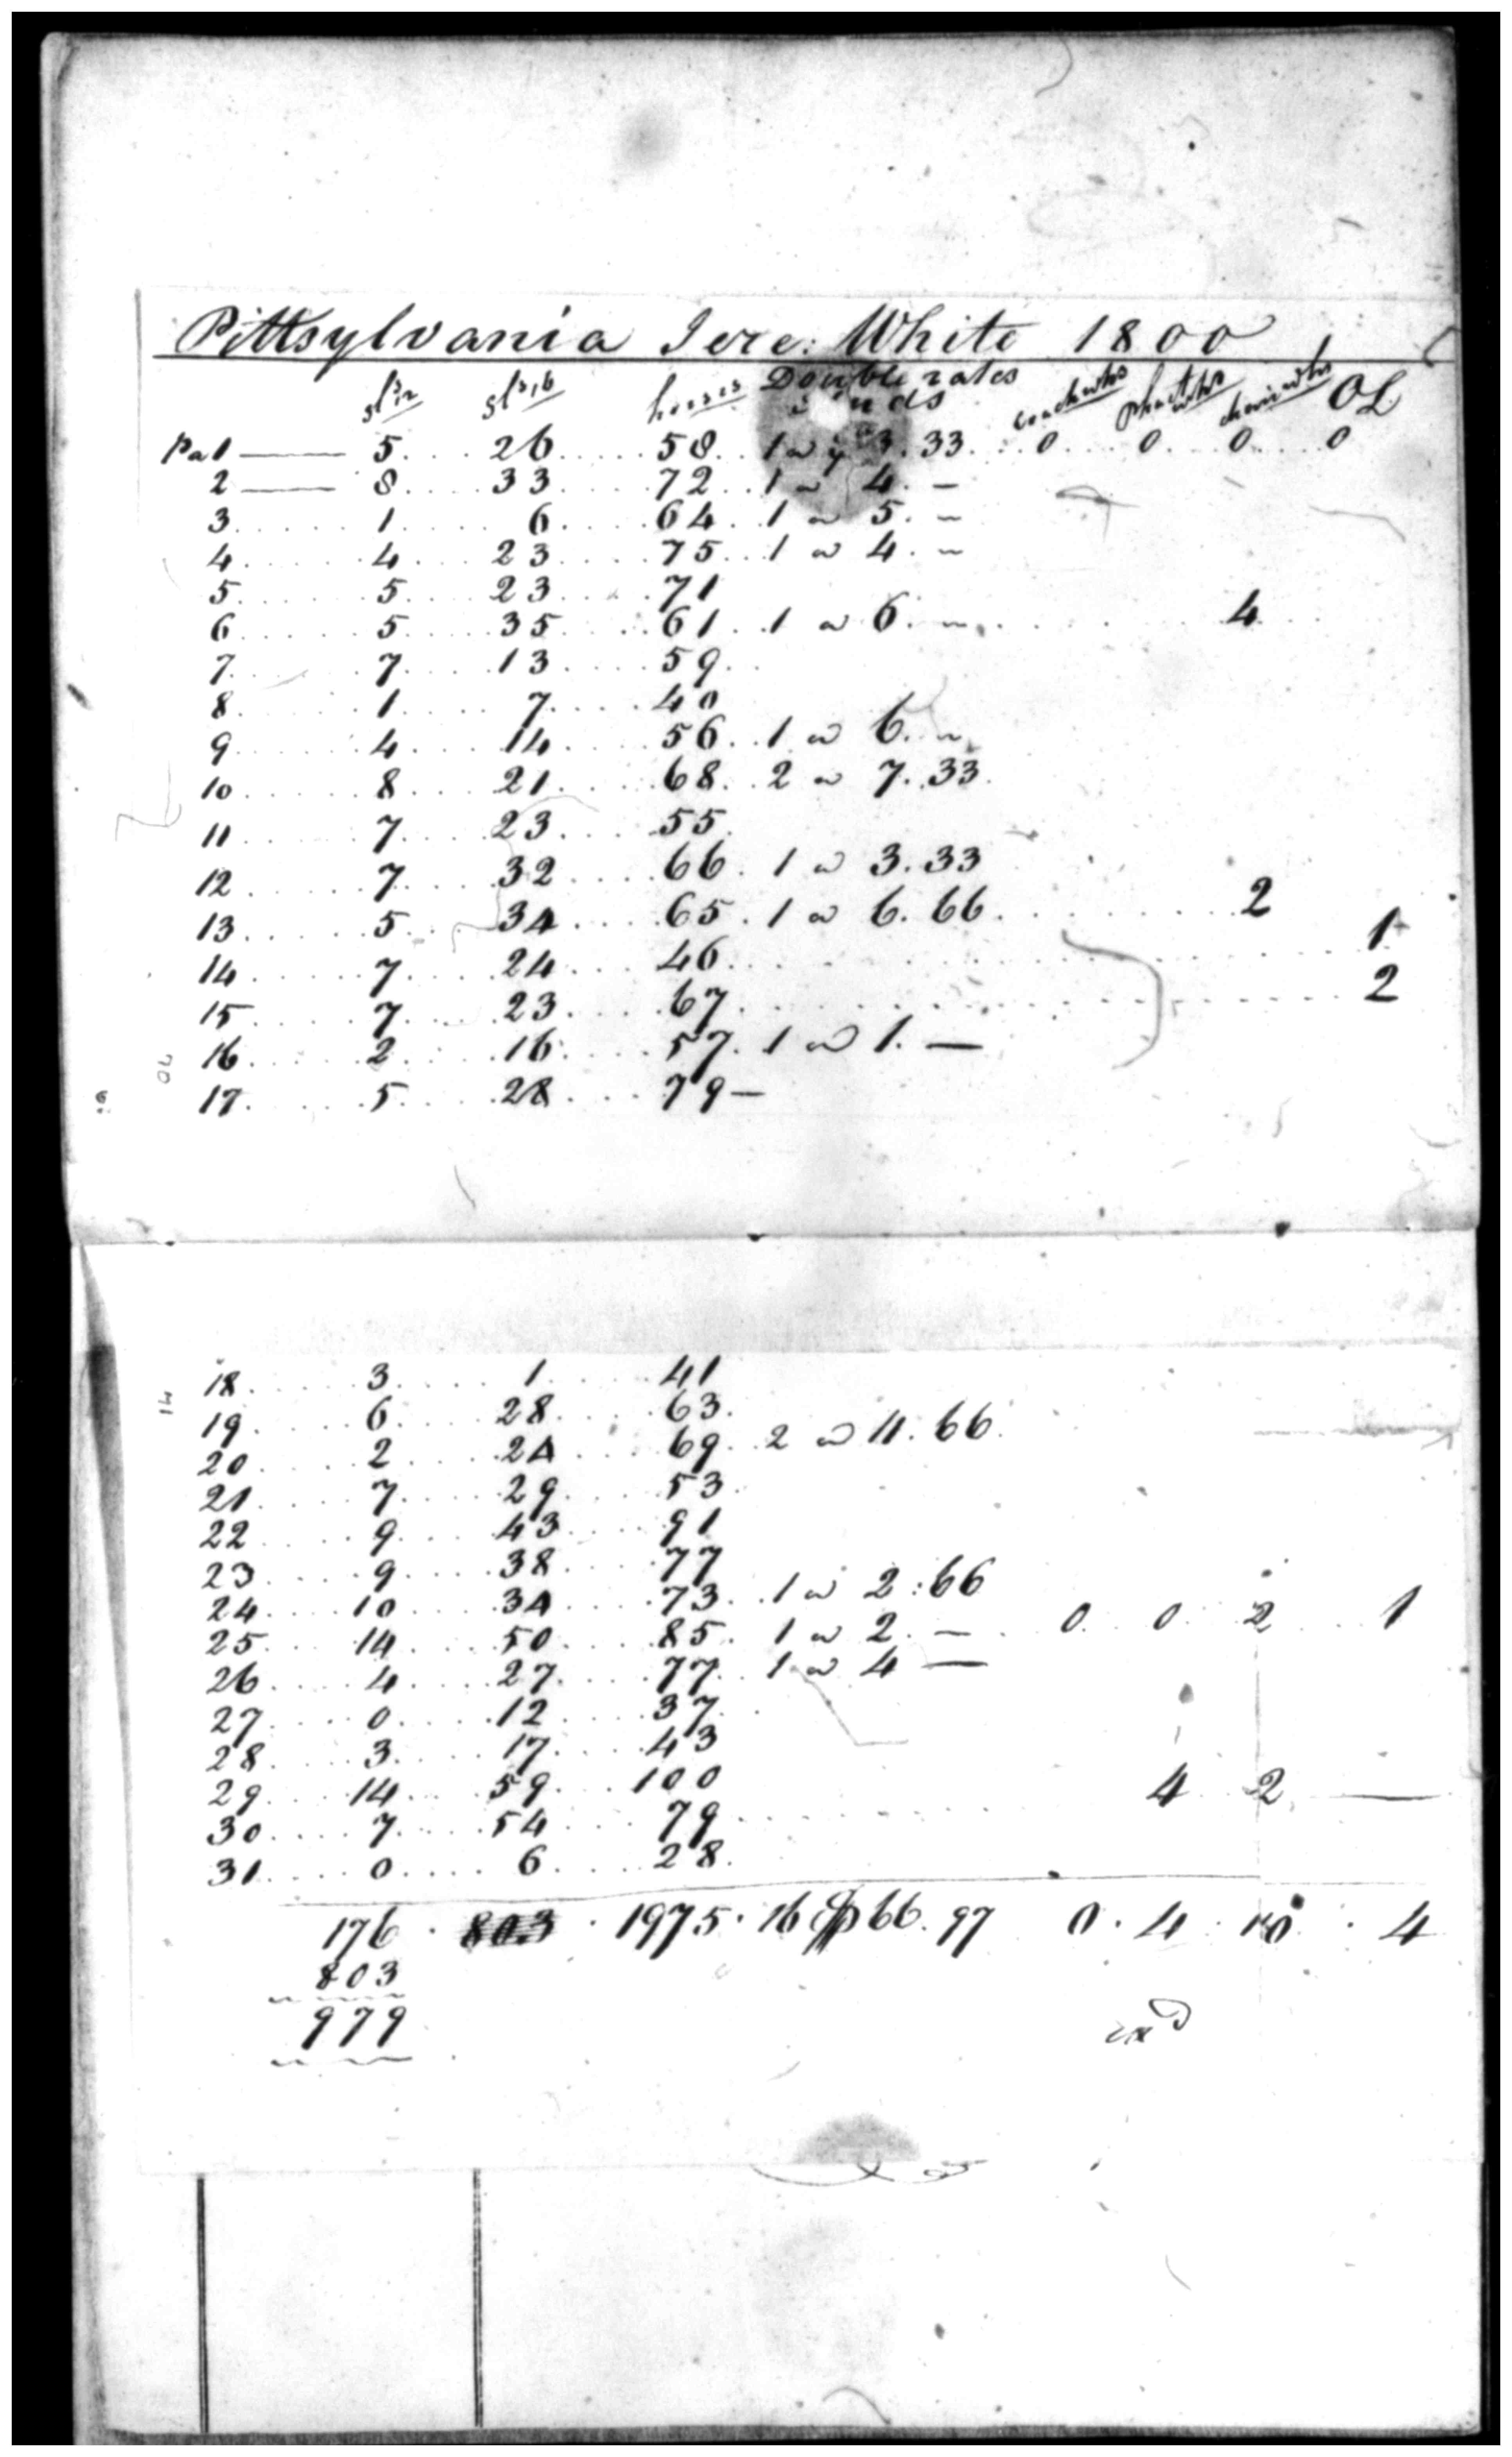 Pittsylvania Jere: White 1800
sl:s 12 sl:s 16 horses Double rates studs coach whs phaet whs chair whs OL
Pa 1 —— 5 . . . 26 . . . . . 58 . . 1 a 3.33 . . . 0 . . . 0 . . . 0 . . . 0
2 —— 8 . . . . 33 . . . . 72 . . 1 a 4. –
3 . . . . . 1 . . . . . 6 . . . . 64 . . 1 a 5. –
4 . . . . . 4 . . . 23 . . . . . 75 . . 1 a 4. –
5 . . . . . 5 . . . . 23 . . . . 71
6 . . . . . 5 . . . . 35 . . . . 61 . . 1 a 6. – . . . . . . 4
7 . . . . . 7 . . . . 13 . . . . 59 . .
8 . . . . . 1 . . . . 7 . . . . 40
9 . . . . . 4 . . . . 14 . . . . 56 . . 1 a 6. –
10 . . . . . 8 . . . . 21 . . . . 68 . . 2 a 7.33
11 . . . . . 7 . . . . 23 . . . . 55
12 . . . . . 7 . . . . 32 . . . . 66 . 1 a 3.33
13 . . . . . 5 . . . . 34 . . . . 65 . 1 a 6.66 . . . . . . . 2
14 . . . . . 7 . . . . 24 . . . . 46 . . . . . . . . . . . 1
15 . . . . . 7 . . . . 23 . . . . 67 . . . . . . . . . . . 2
16 . . . . . 2 . . . . 16 . . . . 57 . 1 a 1. —
17 . . . . . 5 . . . . 28 . . . . 79 –
18 . . . . . 3 . . . . . 1 . . . . 41
19 . . . . . 6 . . . . 28 . . . . 63 .
20 . . . . . 2 . . . . 24 . . . . 69 . . 2 a 11.66
21 . . . . . 7 . . . . 29 . . . . 53
22 . . . . . 9 . . . . 43 . . . . 91
23 . . . . . 9 . . . . 38 . . . . 77
24 . . . . 10 . . . . 34 . . . . 73 . . 1 a 2:66
25 . . . . 14 . . . . 50 . . . . 85 . 1 a 2. – . . 0 . . 0 . . 2 . . . 1
26 . . . . 4 . . . . 27 . . . . 77 . . 1 a 4 —
27 . . . . 0 . . . . 12 . . . . 37 . .
28 . . . . 3 . . . . 17 . . . . 43
29 . . . . 14 . . . . 59 . . . 100
30 . . . . 7 . . . . 54 . . . . 79 . . . . . . . 4 2 —
31 . . . . 0 . . . . 6 . . . . 28 .
176 . 803 . 1975 . 16 $ 66.97 0 . 4 . 10 . 4
803
979
exd